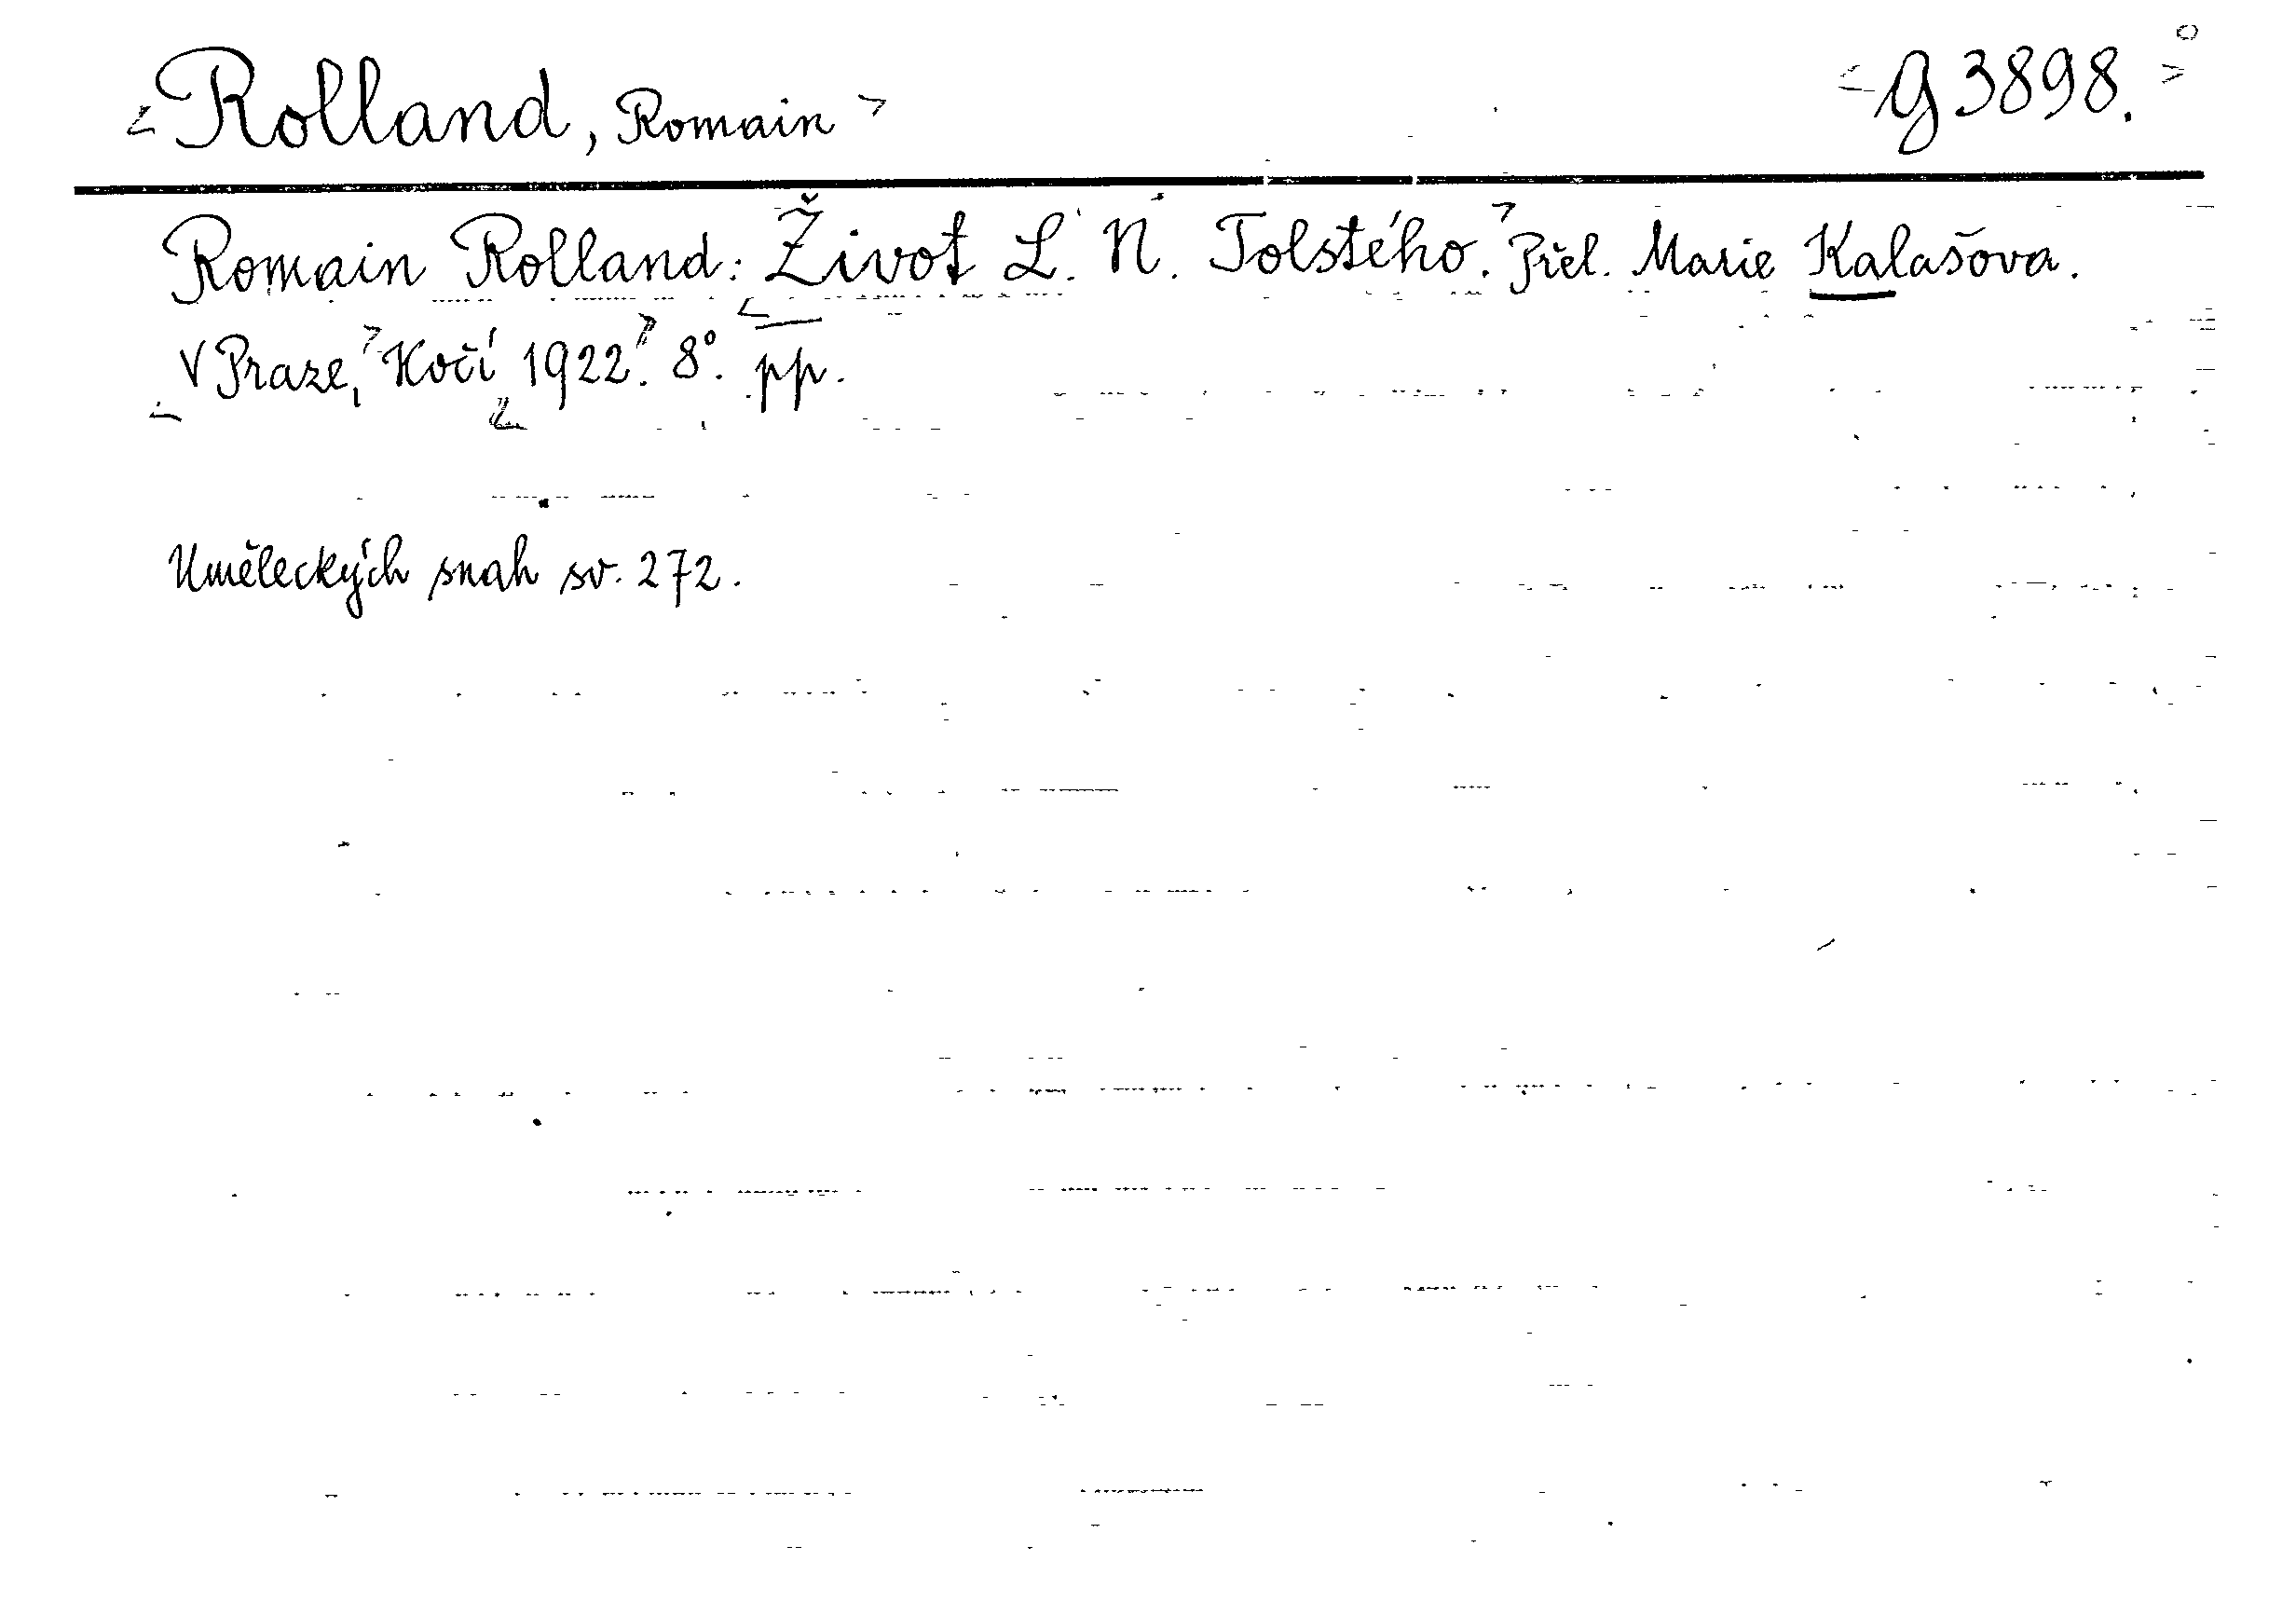 Rolland, Romain g 3898.
Romain Rolland: Život L. N. Tolstého. Přel. Marie Kalašova.
V Praze, Kočí 1922. 8°. pp.
Uměleckých snah sv. 272.